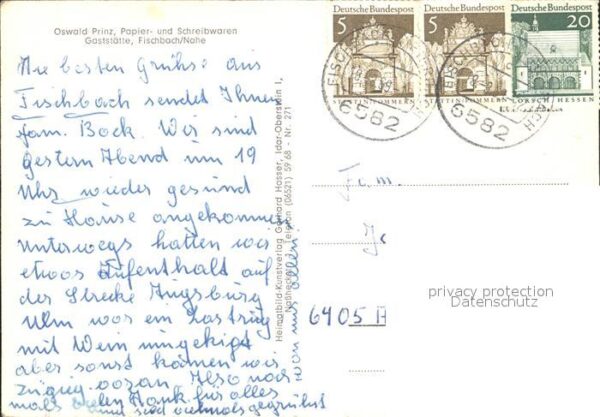 Oswald Prinz, Papier- und Schreibwaren
Gaststätte, Fischbach/Nahe
Die besten Grühse aus
Fischbach sendet Ihnen
fam. Bock. Wir sind
gestern Abend um 19
Uhr wieder gesund
zu Hause angekommen
unterwegs hatten wir
etwas Aufenthalt auf
der Strecke Augsburg
Ulm war ein Lastzug
mit Wein umgekipt
aber sonst kamen wir
zügig voran Also noch
mals vielen Dank für alles
und seid vielmals gegrühst
von uns allen
Heimatbild-Kunstverlag Gerhard Hosser, Idar-Oberstein I,
Telefon (06521) 59 68 - Nr. 271
5 Deutsche Bundespost
STETTIN/POMMERN
5 Deutsche Bundespost
STETTIN/POMMERN
Deutsche Bundespost
20
LORSCH/HESSEN
6582
6582
Fam.
6405 A
privacy protection
Datenschutz